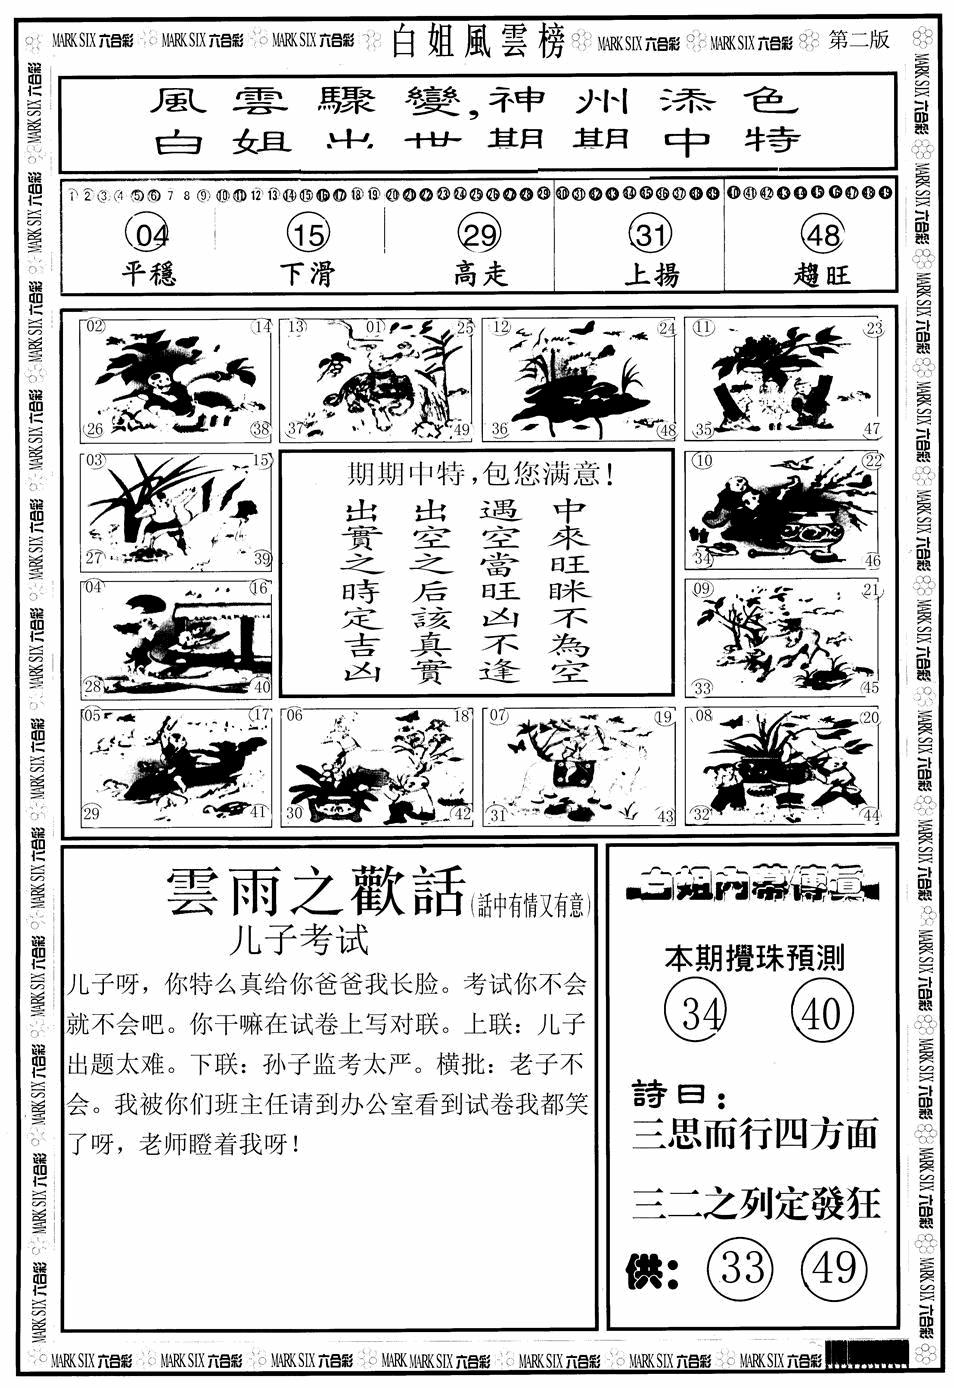 MARK SIX 六合彩 MARK SIX 六合彩 MARK SIX 六合彩 白姐風雲榜 MARK SIX 六合彩 MARK SIX 六合彩 第二版
風雲驟變,神州添色
白姐出世期期中特
1 2 3 4 5 6 7 8 9 10 11 12 13 14 15 16 17 18 19 20 21 22 23 24 25 26 27 28 29 30 31 32 33 34 35 36 37 38 39 40 41 42 43 44 45 46 47 48 49
04 15 29 31 48
平穩 下滑 高走 上揚 趨旺
02 14 13 01 25 12 24 11 23
26 38 37 49 36 48 35 47
03 15 10 22
27 39 34 46
04 16 09 21
28 40 33 45
05 17 06 18 07 19 08 20
29 41 30 42 31 43 32 44
期期中特,包您满意!
中來旺眯不為空
遇空當旺凶不逢
出空之后該真實
出實之時定吉凶
雲雨之歡話(話中有情又有意)
儿子考试
儿子呀，你特么真给你爸爸我长脸。考试你不会
就不会吧。你干嘛在试卷上写对联。上联：儿子
出题太难。下联：孙子监考太严。横批：老子不
会。我被你们班主任请到办公室看到试卷我都笑
了呀，老师瞪着我呀！
白姐内幕傳真
本期攪珠預測
34 40
詩曰：
三思而行四方面
三二之列定發狂
供：33 49
MARK SIX 六合彩 MARK SIX 六合彩 MARK SIX 六合彩 MARK MARK SIX 六合彩 MARK SIX 六合彩 MARK SIX 六合彩 MARK SIX 六合彩